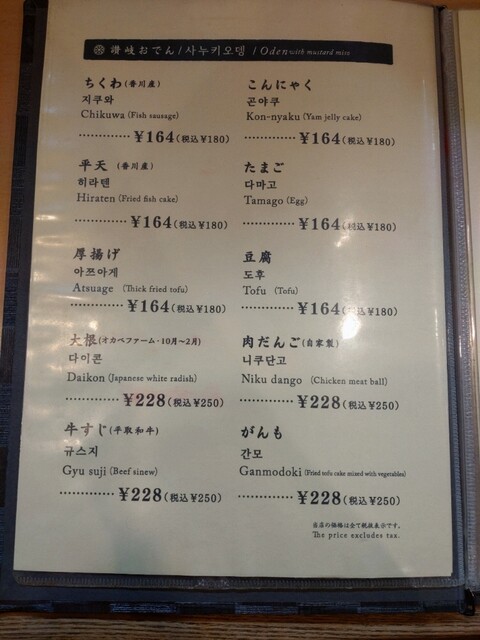 讃岐おでん/사누키오뎅 / Oden with mustard miso
ちくわ(香川産)
지쿠와
Chikuwa (Fish sausage)
············ ¥164(税込¥180)
こんにゃく
곤야쿠
Kon-nyaku (Yam jelly cake)
············ ¥164(税込¥180)
平天 (香川産)
히라텐
Hiraten (Fried fish cake)
············ ¥164(税込¥180)
たまご
다마고
Tamago (Egg)
············ ¥164(税込¥180)
厚揚げ
아쯔아게
Atsuage (Thick fried tofu)
············ ¥164(税込¥180)
豆腐
도후
Tofu (Tofu)
············ ¥164(税込¥180)
大根(オカベファーム・10月~2月)
다이콘
Daikon (Japanese white radish)
············ ¥228(税込¥250)
肉だんご(自家製)
니쿠단고
Niku dango (Chicken meat ball)
············ ¥228(税込¥250)
牛すじ(平取和牛)
규스지
Gyu suji (Beef sinew)
············ ¥228(税込¥250)
がんも
간모
Ganmodoki (Fried tofu cake mixed with vegetables)
············ ¥228(税込¥250)
当店の価格は全て税抜表示です。
The price excludes tax.